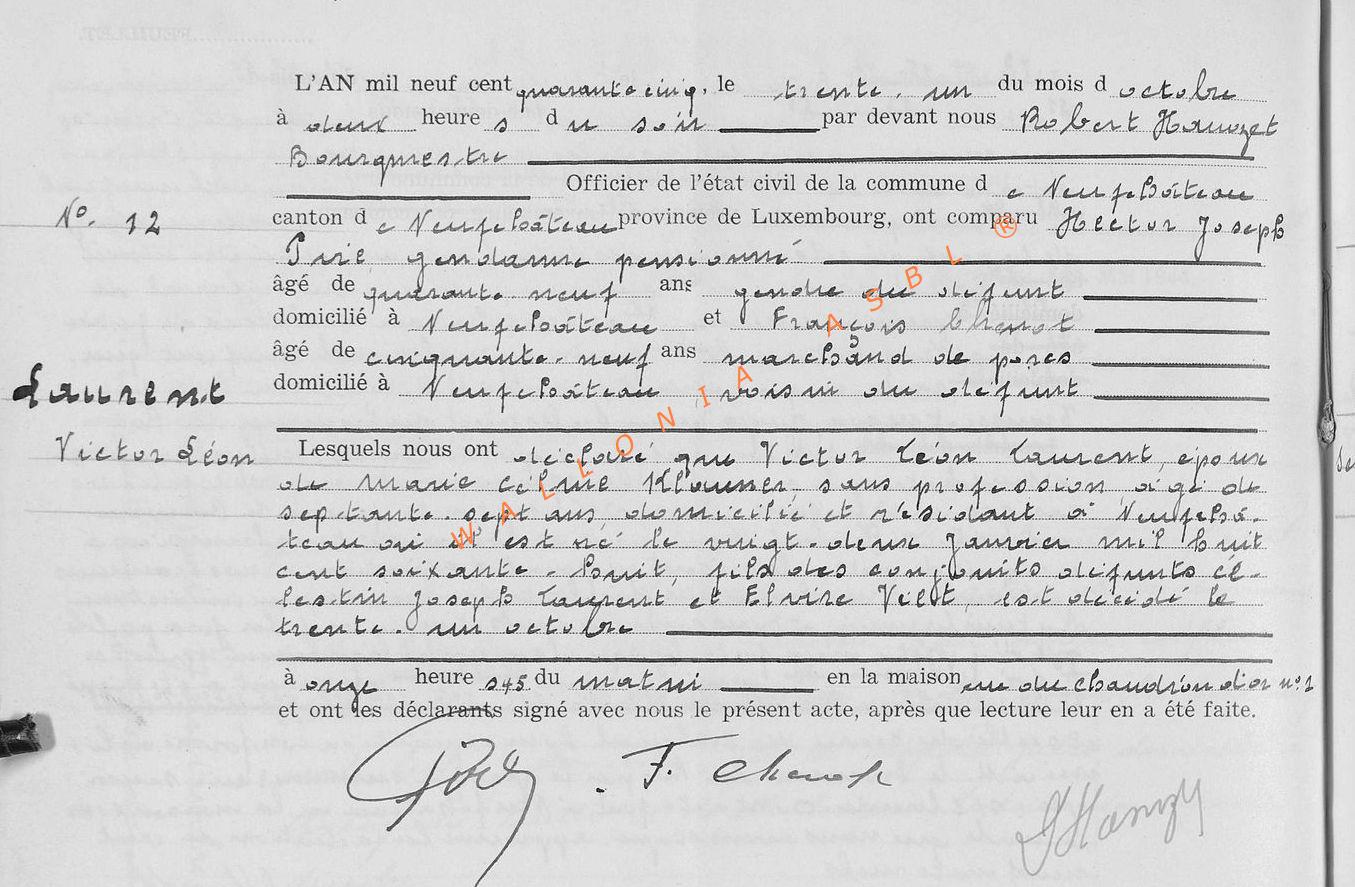 L'AN mil neuf cent quarante cinq, le trente un du mois d octobre
à deux heure s d u soir par devant nous Robert Hanozet
Bourgmestre
Officier de l'état civil de la commune d e Neufchâteau
No. 12
canton d e Neufchâteau province de Luxembourg, ont comparu Hector Joseph
gendarme pensionné
âgé de quarante neuf ans gendre du défunt
domicilié à Neufchâteau et François Chenot
âgé de cinquante-neuf ans marchand de porcs
domicilié à Neufchâteau voisin du défunt
Laurent
Victor Léon
Lesquels nous ont déclaré que Victor Léon Laurent, époux
de Marie Céline sans profession, âgé de
septante-sept ans, domicilié et résidant à Neufchâ-
teau où il est né le vingt-deux Janvier mil huit
cent soixante-huit, fils des conjoints défunts Cé-
lestin Joseph Laurent et Elvire est décédé le
trente-un octobre
à onze heure s 45 du matin en la maison rue du chaudron d'or n°1
et ont les déclarants signé avec nous le présent acte, après que lecture leur en a été faite.
F. Chenot
WALLONIA ASBL ®